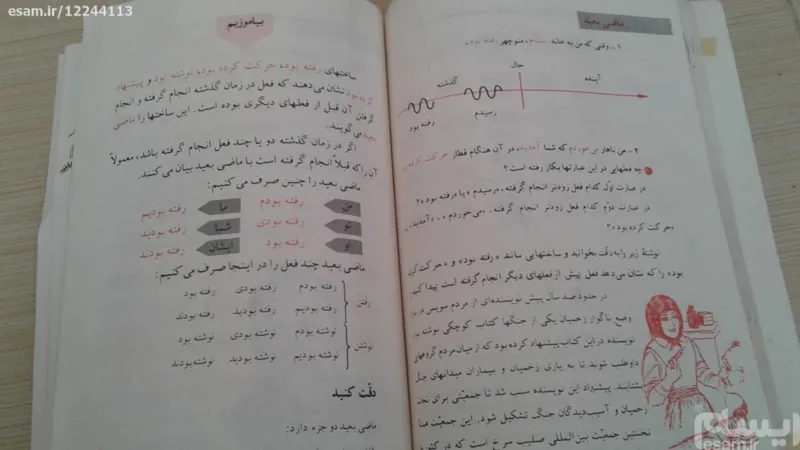 esam.ir/12244113
ماضی بعید
۱ ـ وقتی که من به خانه رسیدم، منوچهر رفته بود.
حال
گذشته
آینده
رسیدم
رفته بود
۲ ـ من ناهار می‌خوردم که شما آمدید، در آن هنگام قطار حرکت کرده بود
چه فعلهایی در این عبارتها بکار رفته است؟
در عبارت اوّل کدام فعل زودتر انجام گرفته، «رسیدم» یا «رفته بود»؟
در عبارت دوّم کدام فعل زودتر انجام گرفته، «می‌خوردم»، «آمدید»،
«حرکت کرده بود»؟
نوشتهٔ زیر را به دقّت بخوانید و ساختهایی مانند «رفته بود» و «حرکت کرده
بود» را که نشان می‌دهد فعل پیش از فعلهای دیگر انجام گرفته است پیدا کنید.
در حدود صد سال پیش نویسنده‌ای از مردم سویس در بار
وضع ناگوار زخمیان یکی از جنگها کتاب کوچکی نوشته بود
نویسنده در این کتاب پیشنهاد کرده بود که از میان مردم گروههای
داوطلب شوند تا به یاری زخمیان و بیماران میدانهای جنگ
بشتابند. پیشنهاد این نویسنده سبب شد تا جمعیّتی برای نجات
زخمیان و آسیب‌دیدگان جنگ تشکیل شود. این جمعیّت هما
نخستین جمعیّت بین‌المللی صلیب سرخ است که در کشور
بیاموزیم
ساختهای رفته بود، حرکت کرده بود، نوشته بود و پیشنهاد
کرده بود نشان می‌دهند که فعل در زمان گذشته انجام گرفته و انجام
گرفتن آن قبل از فعلهای دیگری بوده است. این ساختها را ماضی
بعید می‌گویند.
اگر در زمان گذشته دو یا چند فعل انجام گرفته باشد، معمولاً
آن را که قبلاً انجام گرفته است با ماضی بعید بیان می‌کنند.
ماضی بعید را چنین صرف می‌کنیم:
من رفته بودم ما رفته بودیم
تو رفته بودی شما رفته بودید
او رفته بود ایشان رفته بودند
ماضی بعید چند فعل را در اینجا صرف می‌کنیم:
رفتن
رفته بودم رفته بودی رفته بود
رفته بودیم رفته بودید رفته بودند
نوشتن
نوشته بودم نوشته بودی نوشته بود
نوشته بودیم نوشته بودید نوشته بودند
دقّت کنید
ماضی بعید دو جزء دارد:
ایسام
esam.ir